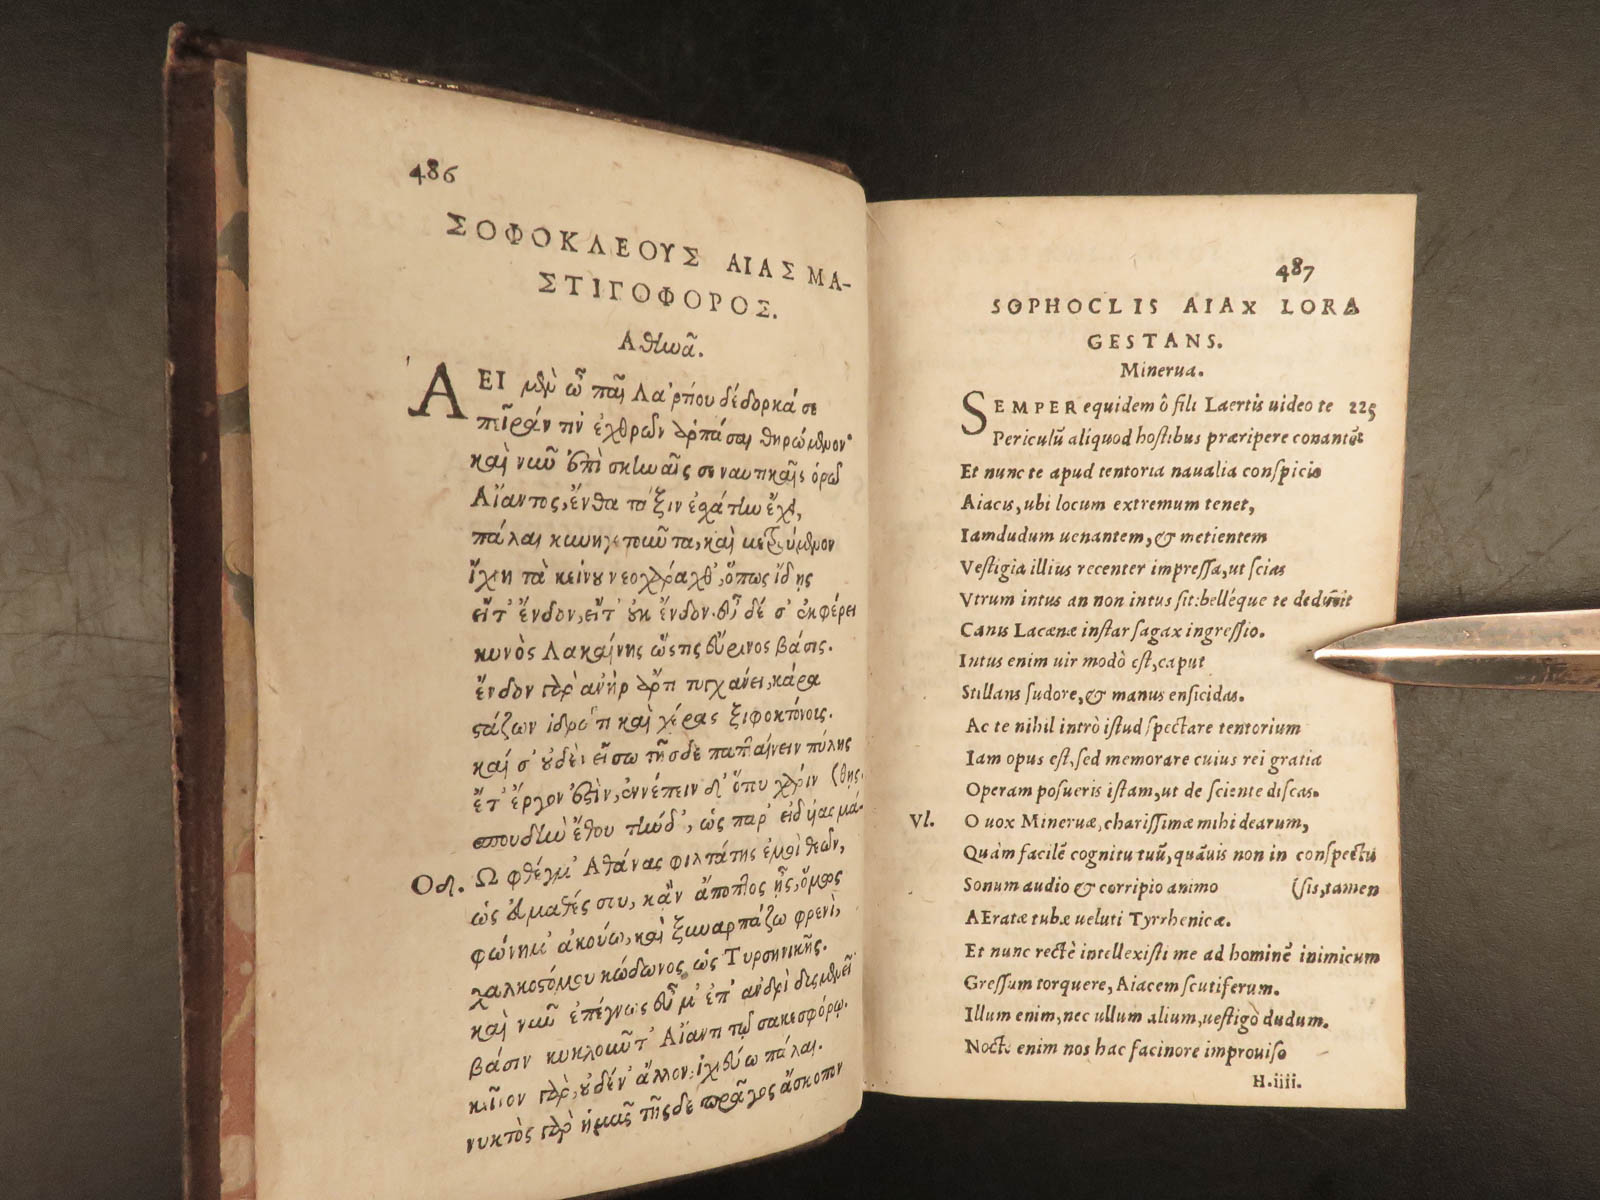 486
ΣΟΦΟΚΛΕΟΥΣ ΑΙΑΣ ΜΑ-
ΣΤΙΓΟΦΟΡΟΣ.
Αθηνᾶ.
ΑΕΙ μὲν ὦ παῖ Λαρτίου δέδορκά σε
πεῖράν τιν' ἐχθρῶν ἁρπάσαι θηρώμενον·
καὶ νῦν ἐπὶ σκηναῖς σε ναυτικαῖς ὁρῶ
Αἴαντος, ἔνθα τάξιν ἐσχάτην ἔχει,
πάλαι κυνηγετοῦντα, καὶ μετρούμενον
ἴχνη τὰ κείνου νεοχάραχθ', ὅπως ἴδῃς
εἴτ' ἔνδον, εἴτ' οὐκ ἔνδον. εὖ δέ σ' ἐκφέρει
κυνὸς Λακαίνης ὥς τις εὔρινος βάσις.
ἔνδον γὰρ ἀνὴρ ἄρτι τυγχάνει, κάρα
στάζων ἱδρῶτι καὶ χέρας ξιφοκτόνους.
καί σ' οὐδὲν εἴσω τῆσδε παπταίνειν πύλης
ἔτ' ἔργον ἐστὶν, ἐννέπειν δ' ὅτου χάριν (θῃς.
σπουδὴν ἔθου τήνδ', ὡς παρ' εἰδυίας μά-
Οδ. Ω φθέγμ' Αθάνας φιλτάτης ἐμοὶ θεῶν,
ὡς εὐμαθές σου, κἂν ἄποπτος ᾖς, ὅμως
φώνημ' ἀκούω, καὶ ξυναρπάζω φρενὶ,
χαλκοστόμου κώδωνος ὡς Τυρσηνικῆς.
καὶ νῦν ἐπέγνως εὖ μ' ἐπ' ἀνδρὶ δυσμενεῖ
βάσιν κυκλοῦντ' Αἴαντι τῷ σακεσφόρῳ.
κεῖνον γὰρ, οὐδέν' ἄλλον, ἰχνεύω πάλαι.
νυκτὸς γὰρ ἡμᾶς τῆσδε πρᾶγος ἄσκοπον
487
SOPHOCLIS AIAX LORA
GESTANS.
Minerua.
SEMPER equidem ô fili Laertis uideo te 225
Periculũ aliquod hostibus præripere conantẽ:
Et nunc te apud tentoria naualia conspicio
Aiacis, ubi locum extremum tenet,
Iamdudum uenantem, & metientem
Vestigia illius recenter impressa, ut scias
Vtrum intus an non intus sit: belléque te deducit
Canis Lacænæ instar sagax ingressio.
Intus enim uir modò est, caput
Stillans sudore, & manus ensicidas.
Ac te nihil intrò istud spectare tentorium
Iam opus est, sed memorare cuius rei gratia
Operam posueris istam, ut de sciente discas.
Vl. O uox Mineruæ, charissimæ mihi dearum,
Quàm facilè cognitu tuũ, quãuis non in conspectu
Sonum audio & corripio animo (sis, tamen
AEratæ tubæ ueluti Tyrrhenicæ.
Et nunc rectè intellexisti me ad hominẽ inimicum
Gressum torquere, Aiacem scutiferum.
Illum enim, nec ullum alium, uestigò dudum.
Nocte enim nos hac facinore improuiso
H.iiii.